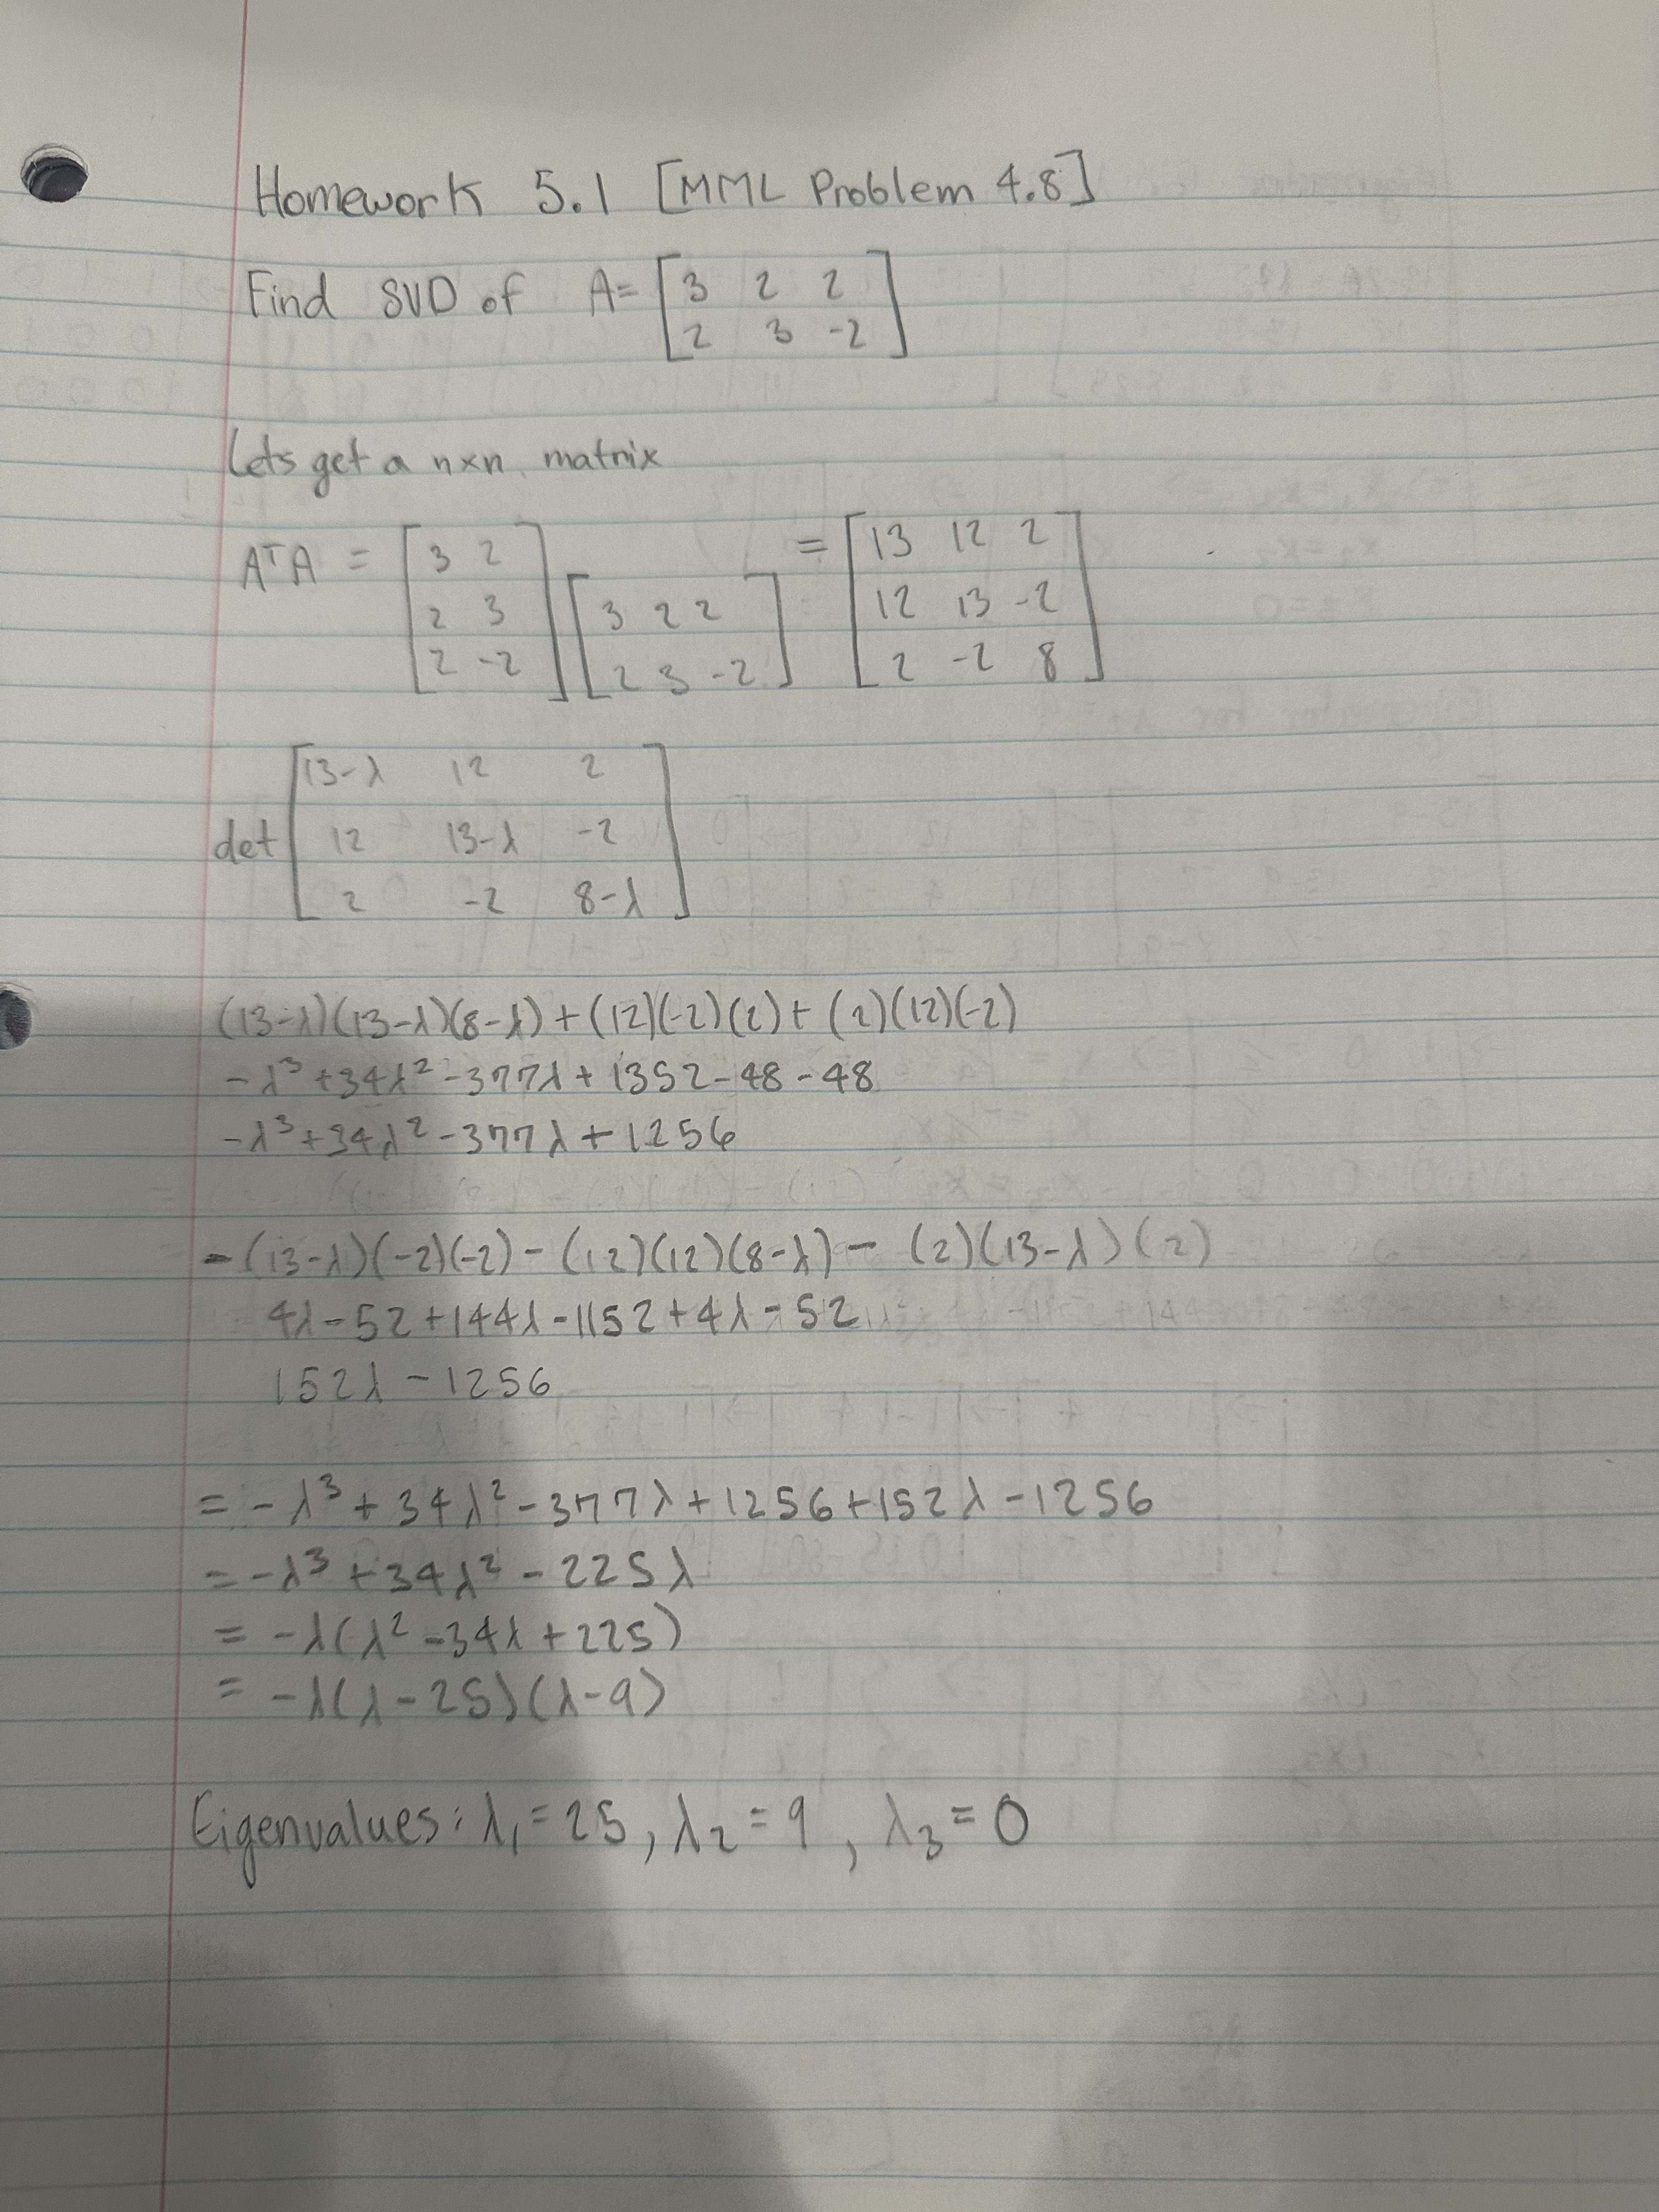 Homework 5.1 [MML Problem 4.8]
Find SVD of A= [3 2 2
2 3 -2]
Lets get a n×n matrix
AᵀA = [3 2
2 3
2 -2] [3 2 2
2 3 -2] = [13 12 2
12 13 -2
2 -2 8]
det [13-λ 12 2
12 13-λ -2
2 -2 8-λ]
(13-λ)(13-λ)(8-λ)+(12)(-2)(2)+(2)(12)(-2)
-λ³+34λ²-377λ+1352-48-48
-λ³+34λ²-377λ+1256
-(13-λ)(-2)(-2)-(12)(12)(8-λ)-(2)(13-λ)(2)
4λ-52+144λ-1152+4λ-52
152λ-1256
=-λ³+34λ²-377λ+1256+152λ-1256
=-λ³+34λ²-225λ
=-λ(λ²-34λ+225)
=-λ(λ-25)(λ-9)
Eigenvalues: λ₁=25, λ₂=9, λ₃=0